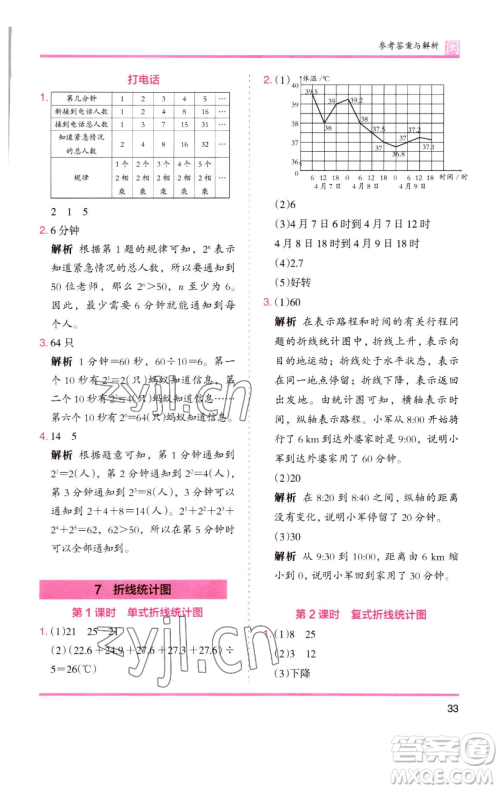 参考答案与解析 闽
打电话
1.
第几分钟 1 2 3 4 5 …
新接到电话人数 1 2 4 8 16 …
接到电话总人数 1 3 7 15 31 …
知道紧急情况的总人数 2 4 8 16 32 …
规律 1个2相乘 2个2相乘 3个2相乘 4个2相乘 5个2相乘 …
2 1 5
2. 6 分钟
解析 根据第 1 题的规律可知，2ⁿ 表示
知道紧急情况的总人数，所以通知到
50 位老师，那么 2ⁿ>50，n 至少为 6。
因此，最少用 6 分钟就能通知到每
个人。
3. 64 只
解析 1 分钟=60 秒，60÷10=6。第
一个 10 秒有 2¹=2(只)蚂蚁知道信息，第
二个 10 秒有 2²=4(只)蚂蚁知道信息……
第六个 10 秒有 2⁶=64(只)蚂蚁知道信息。
4. 14 5
解析 根据题意可知，第 1 分钟通知到
2¹=2(人)，第 2 分钟通知到 2²=4(人)，
第 3 分钟通知到 2³=8(人)，3 分钟共通
知到 2+4+8=14(人)。2¹+2²+2³+
2⁴+2⁵=62，62>50，所以最少用 5 分钟
可以全部通知到。
7 折线统计图
第 1 课时 单式折线统计图
1. (1)21 25 21
(2)(22.6+24.9+27.6+27.3+27.6)÷
5=26(℃)
2. (1)
体温 / ℃
40
39
38
37
36
0
39.5
38
39
39.2
38
37.5
37.2
37
36.8
37.1
6 12 18 0 6 12 18 0 6 12 18 时间 / 时
4月7日 4月8日 4月9日
(2)6
(3)4 月 7 日 6 时 4 月 7 日 12 时
4 月 8 日 18 时 4 月 9 日 18 时
(4)2.7
(5)好转
3. (1)60
解析 在表示路程和时间的有关行程问
题的折线统计图中，折线往上升，表示前
进；折线处于水平状态，表示停止不动；
折线往下降，表示返回。横轴相对表示
时间，纵轴相对表示路程。小军从 8:00
开始出发，9:00 到达外婆家，外婆家相
距 6 km 到达外婆家时是 9:00，所以小军
骑 6 km 到达外婆家用了 60 分。
(2)20
解析 在 8:20 到 8:40 内，纵轴的距离
没有变化，表示这段时间小军停留了。
(3)30
解析 从 9:30 到 10:00，纵轴的距离
从 6 km 到 0，表示小军回家用了 30 分。
第 2 课时 复式折线统计图
1. (1)8 25
(2)3 12
(3)下降
zyjl.cn
zyjl.cn
33
答案圈
MXQE.COM